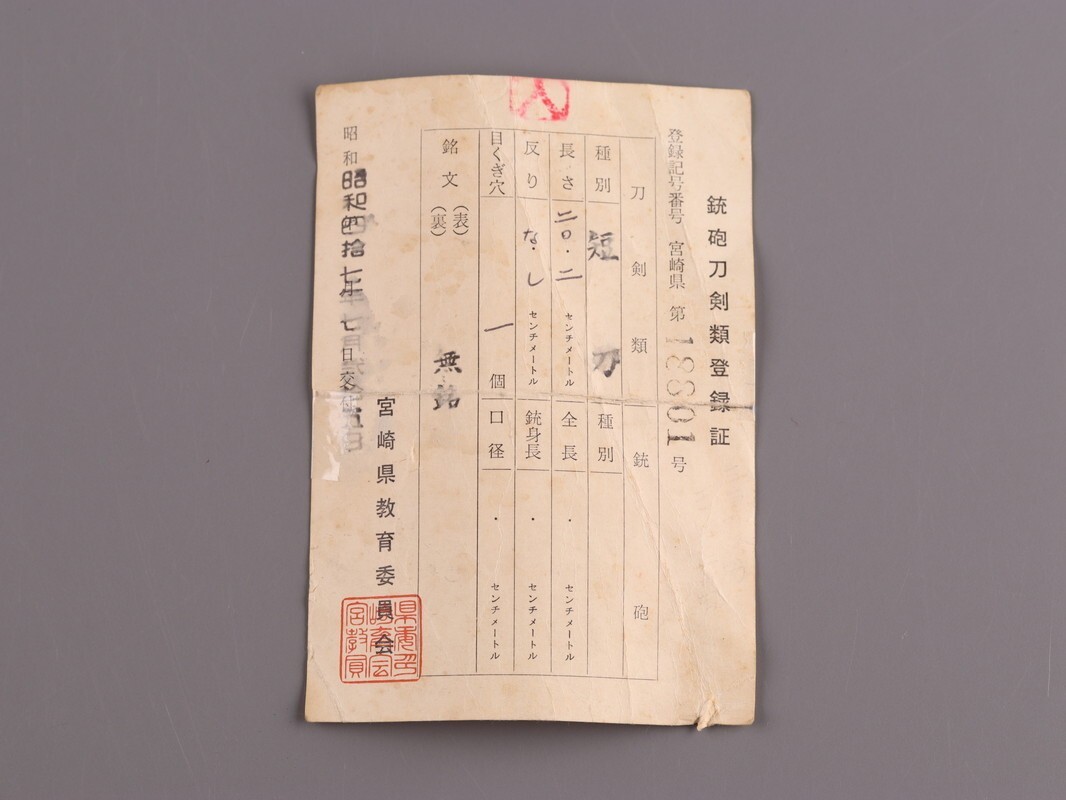 銃砲刀剣類登録証
登録記号番号 宮崎県 第 18801 号
刀剣類 銃砲
種別 短刀 種別
長さ 二〇・二 センチメートル 全長 ・ センチメートル
反り な・し センチメートル 銃身長 ・ センチメートル
目くぎ穴 一 個 口径 ・ センチメートル
銘文 (表)
(裏) 無銘
宮崎県教育委員会
昭和 昭和四拾七年七月 日交付 五日